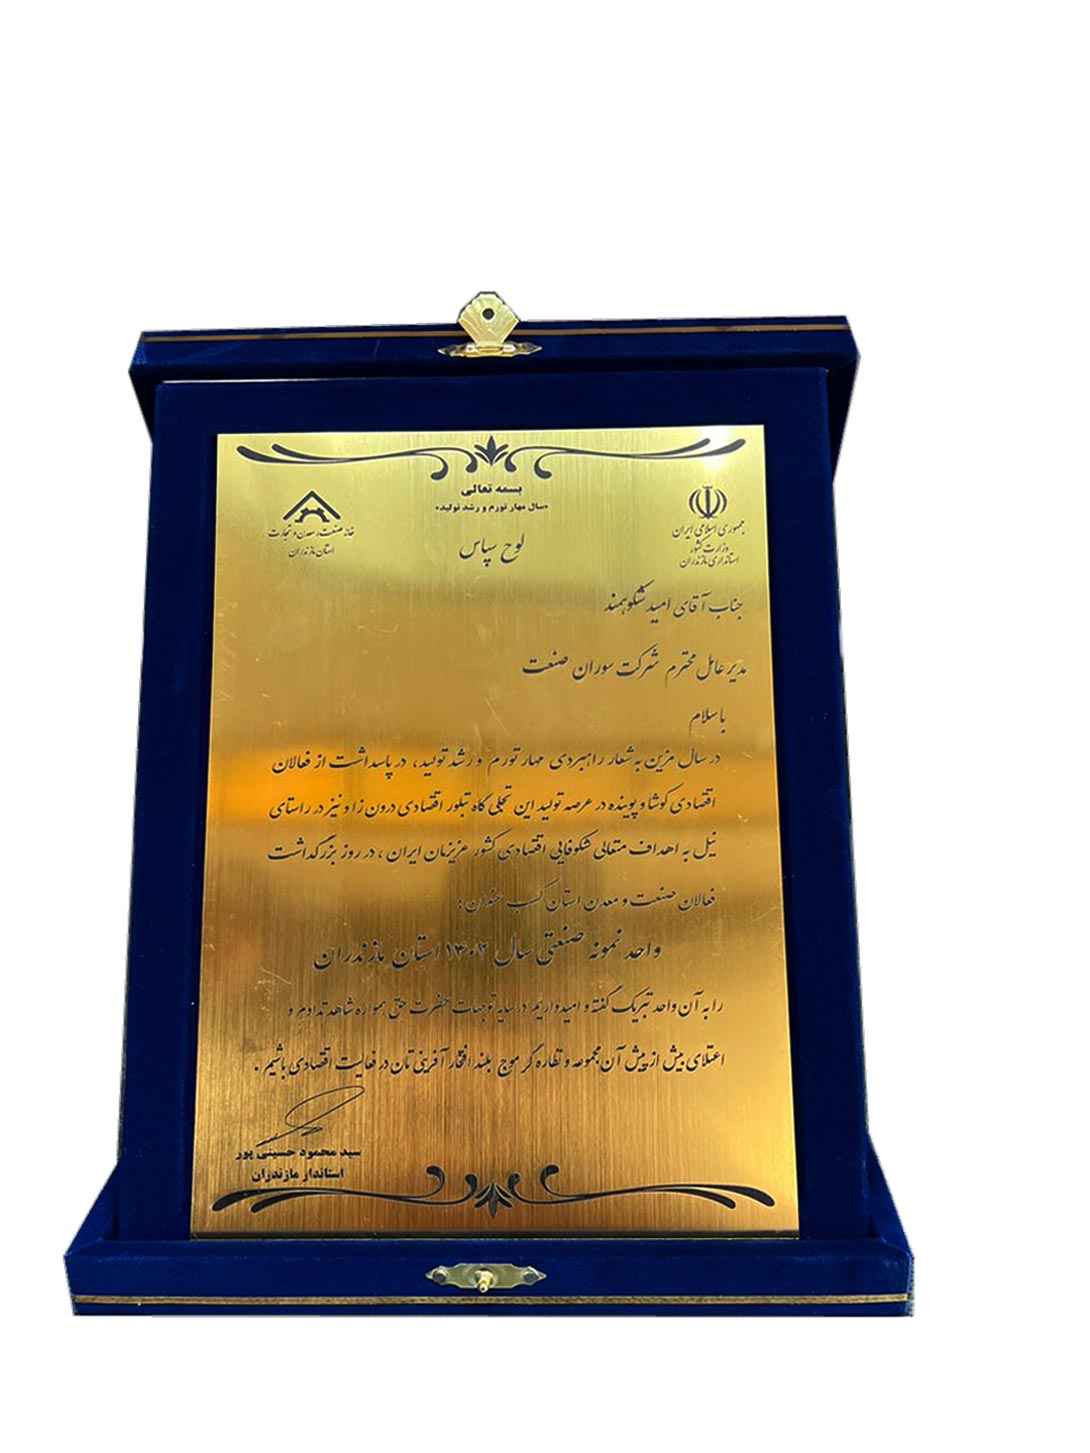 بسمه تعالی
«سال مهار تورم و رشد تولید»
جمهوری اسلامی ایران
وزارت کشور
استانداری مازندران
خانه صنعت، معدن و تجارت
استان مازندران
لوح سپاس
جناب آقای امید شکوهمند
مدیر عامل محترم شرکت سوران صنعت
با سلام
در سال مزین به شعار راهبردی مهار تورم و رشد تولید، در پاسداشت از فعالان
اقتصادی کوشا و پوینده در عرصه تولید این تجلی گاه تبلور اقتصادی درون زا و نیز در راستای
نیل به اهداف متعالی شکوفایی اقتصادی کشور عزیزمان ایران ، در روز بزرگداشت
فعالان صنعت و معدن استان کسب عنوان :
واحد نمونه صنعتی سال ۱۴۰۲ استان مازندران
را به آن واحد تبریک گفته و امیدواریم در سایه توجهات حضرت حق همواره شاهد تداوم و
اعتلای بیش از پیش آن مجموعه و نظاره گر موج بلند افتخار آفرینی تان در فعالیت اقتصادی باشیم .
سید محمود حسینی پور
استاندار مازندران